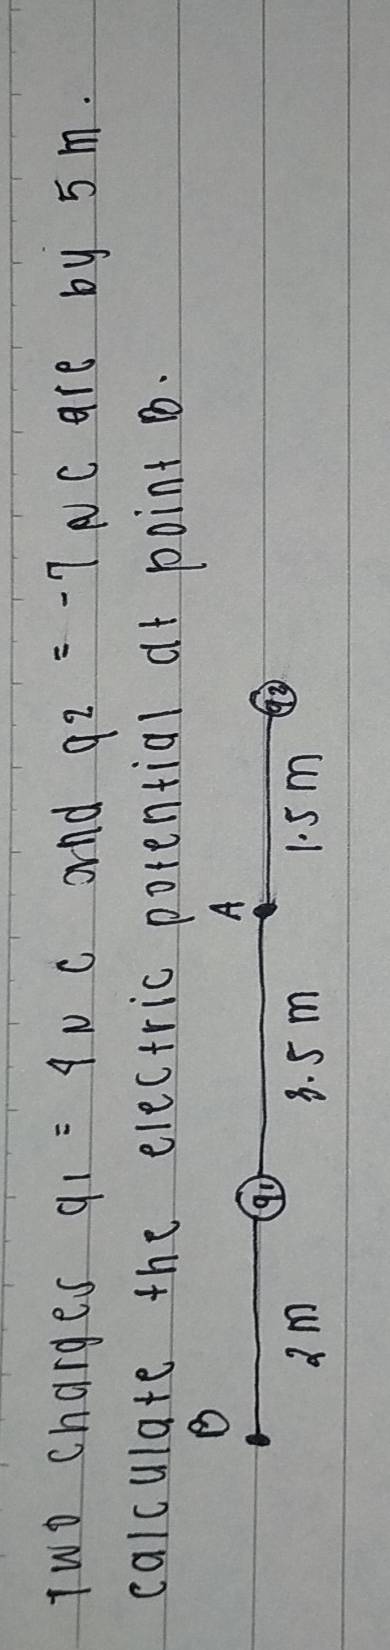 Two charges q1 = 4 N C and q2 = -7 N C are by 5 m.
calculate the electric potential at point B.
B A
q1 q2
2 m 3.5 m 1.5 m